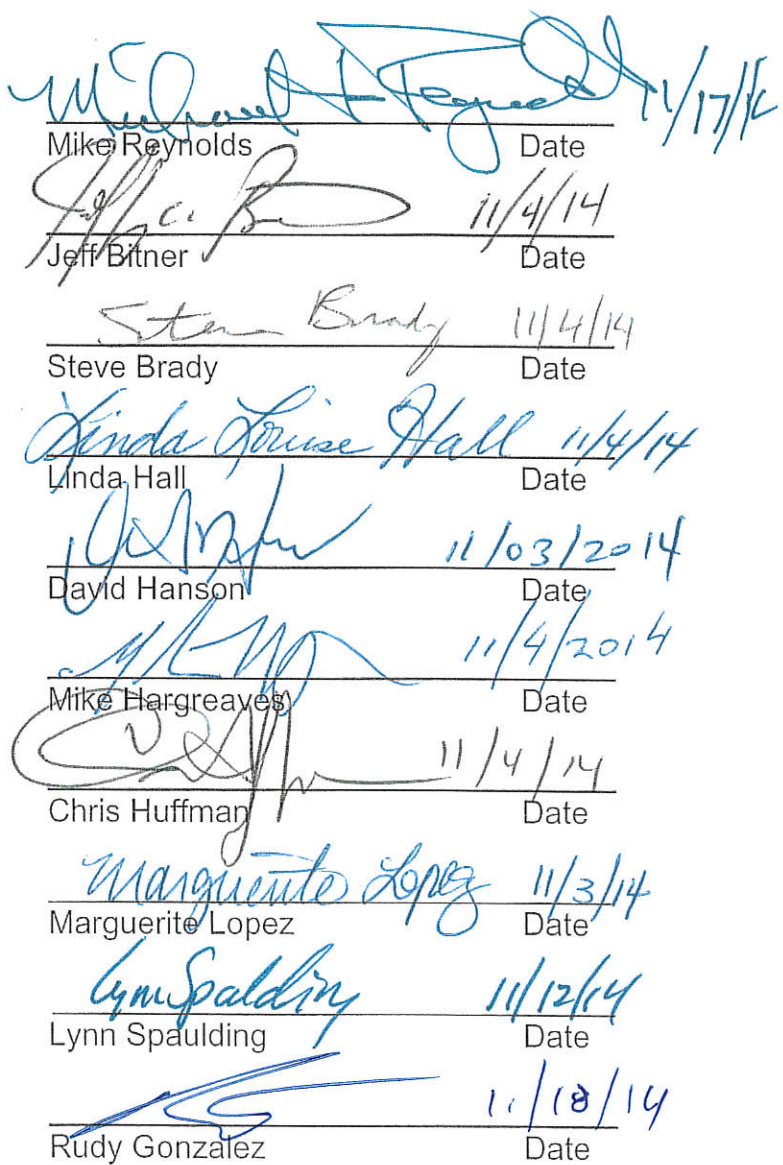 Michael F Reynolds 11/17/14
Mike Reynolds Date
11/4/14
Jeff Bitner Date
Steve Brady 11/4/14
Steve Brady Date
Linda Louise Hall 11/4/14
Linda Hall Date
11/03/2014
David Hanson Date
11/4/2014
Mike Hargreaves Date
11/4/14
Chris Huffman Date
Marguerite Lopez 11/3/14
Marguerite Lopez Date
Lynn Spalding 11/12/14
Lynn Spaulding Date
11/18/14
Rudy Gonzalez Date